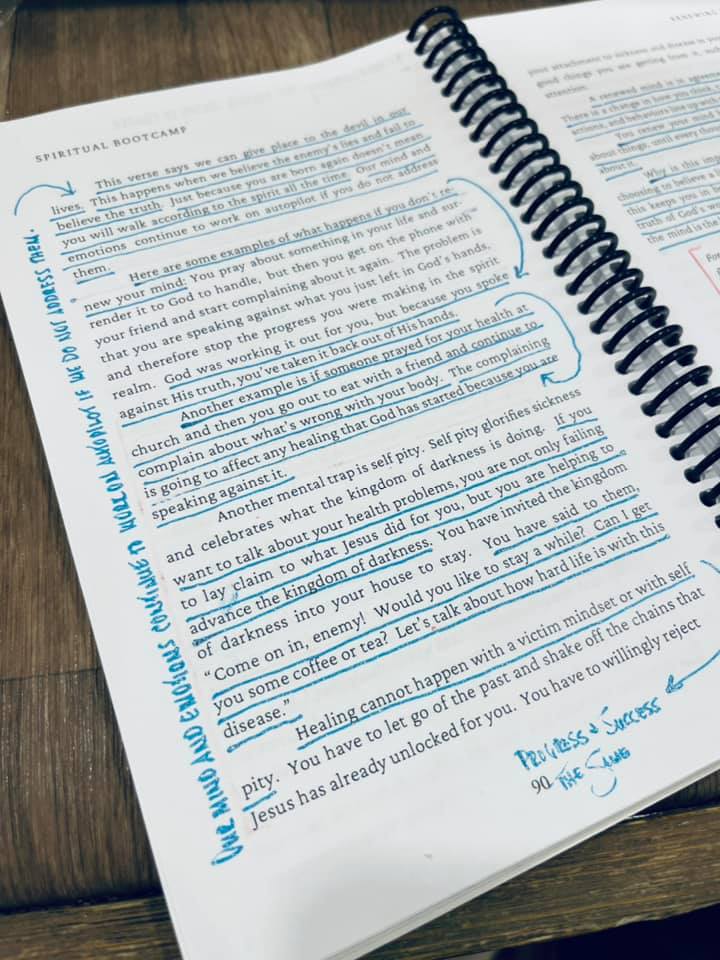 SPIRITUAL BOOTCAMP
This verse says we can give place to the devil in our
lives. This happens when we believe the enemy's lies and fail to
believe the truth. Just because you are born again doesn't mean
you will walk according to the spirit all the time. Our mind and
emotions continue to work on autopilot if you do not address
them.
Here are some examples of what happens if you don't re-
new your mind: You pray about something in your life and sur-
render it to God to handle, but then you get on the phone with
your friend and start complaining about it again. The problem is
that you are speaking against what you just left in God's hands,
and therefore stop the progress you were making in the spirit
realm. God was working it out for you, but because you spoke
against His truth, you've taken it back out of His hands.
Another example is if someone prayed for your health at
church and then you go out to eat with a friend and continue to
complain about what's wrong with your body. The complaining
is going to affect any healing that God has started because you are
speaking against it.
Another mental trap is self pity. Self pity glorifies sickness
and celebrates what the kingdom of darkness is doing. If you
want to talk about your health problems, you are not only failing
to lay claim to what Jesus did for you, but you are helping to
advance the kingdom of darkness. You have invited the kingdom
of darkness into your house to stay. You have said to them,
"Come on in, enemy! Would you like to stay a while? Can I get
you some coffee or tea? Let's talk about how hard life is with this
disease."
Healing cannot happen with a victim mindset or with self
pity. You have to let go of the past and shake off the chains that
Jesus has already unlocked for you. You have to willingly reject
90
OUR MIND AND EMOTIONS CONTINUE TO WORK ON AUTOPILOT IF WE DO NOT ADDRESS THEM.
PROGRESS & SUCCESS
THE SAME
your attachment to sickness and disease in
good things you are getting from it,
attention.
A renewed mind is in
There is a change in how you think,
actions, and behaviors line up with
You renew your mind
about things, until every
about it.
Why is this
choosing to believe a
this keeps you in
truth of God's
the mind is the